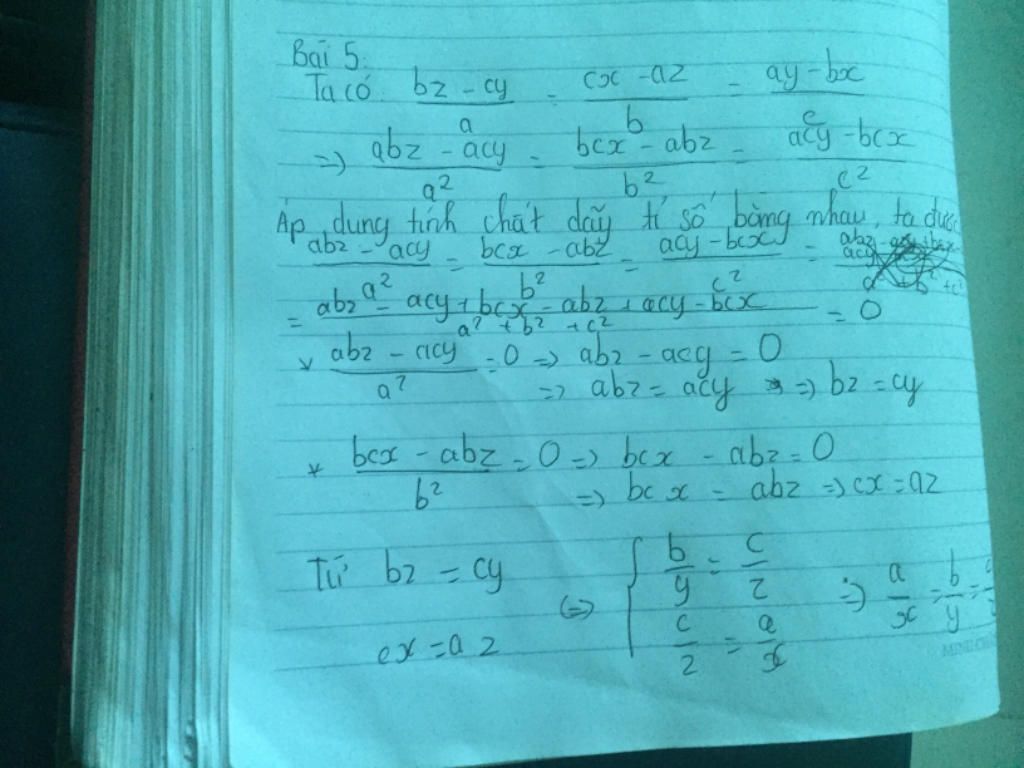 Bài 5:
Ta có bz - cy / a = cx - az / b = ay - bx / c
=> abz - acy / a² = bcx - abz / b² = acy - bcx / c²
Áp dung tính chất dãy tỉ số bằng nhau, ta được
abz - acy / a² = bcx - abz / b² = acy - bcx / c² =
= abz - acy + bcx - abz + acy - bcx / a² + b² + c² = 0
* abz - acy / a² = 0 => abz - acy = 0
=> abz = acy => bz = cy
* bcx - abz / b² = 0 => bcx - abz = 0
=> bcx = abz => cx = az
Từ bz = cy
cx = az
<=> { b / y = c / z
c / z = a / x
=> a / x = b / y =